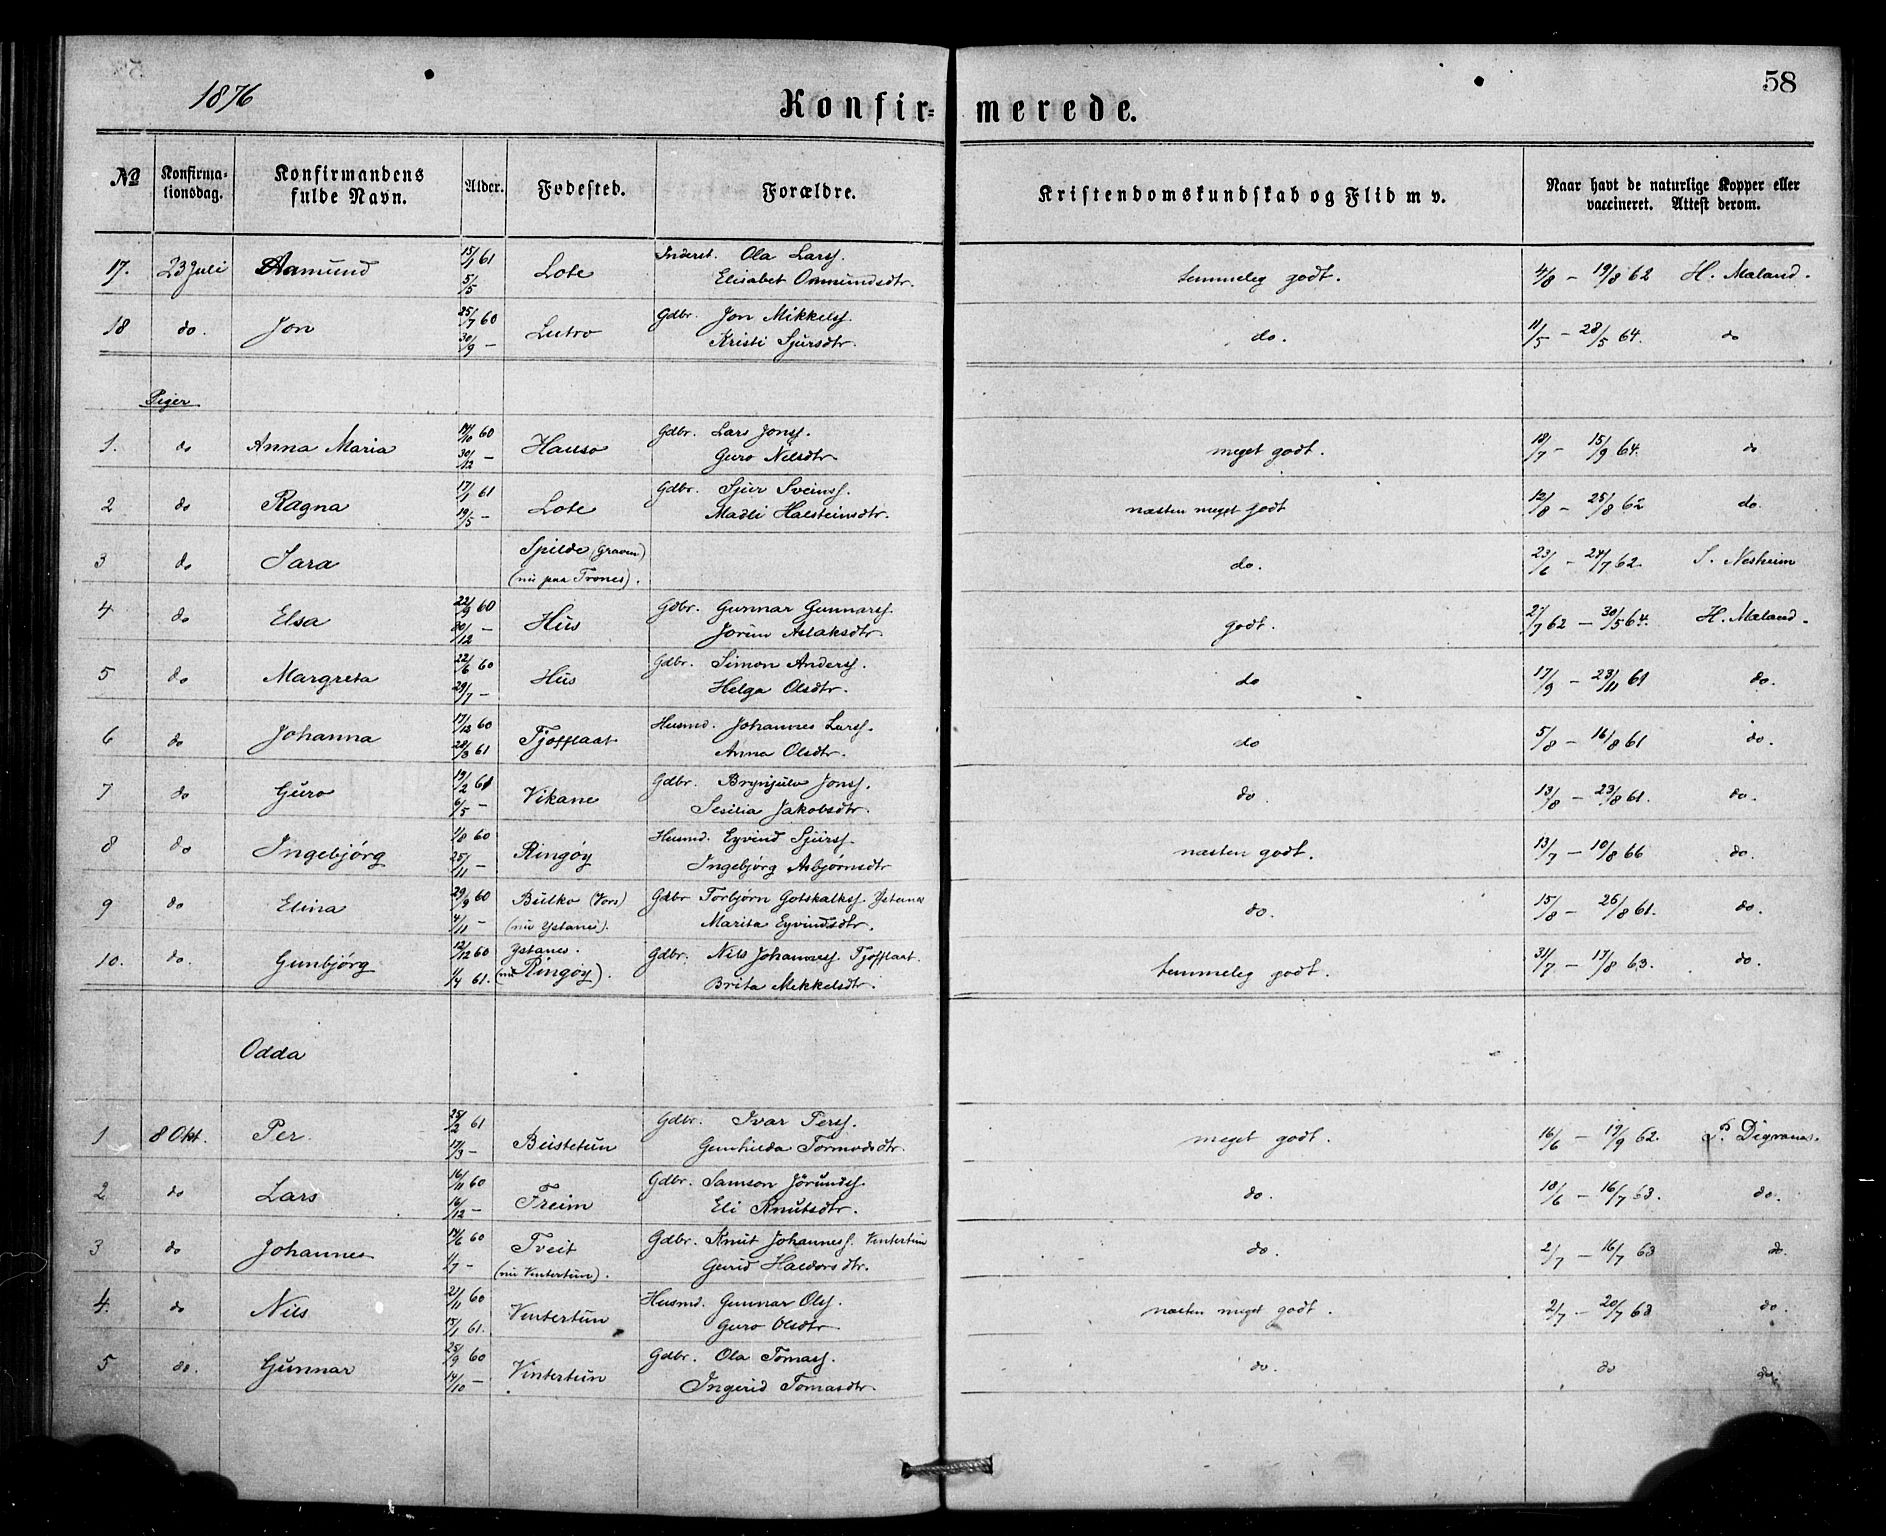 1876
58
Konfirmerede.
No Konfirmationsdag. Konfirmandens fulde Navn. Alder. Fødested. Forældre. Kristendomskundskab og Flid m v. Naar havt de naturlige Kopper eller vaccineret. Attest derom.
17. 23 Juli Aamund 15/1 61 5/5 Lote Inderst. Ola Larss. Elisabet Ommundsdtr. temmeleg godt. 4/8 – 19/8 62 H. Mæland.
18 do. Jon 25/7 60 30/9 – Lutro Gdbr. Jon Mikkelss. Kristi Sjursdtr. do. 11/5 – 28/5 64. do
Piger
1. do Anna Maria 14/10 60 30/12 – Hauso Gdbr. Lars Jonss. Guro Nilsdtr. meget godt. 18/7 – 15/9 64. do
2 do Ragna 17/1 61 19/5 – Lote Gdbr. Sjur Sveinss. Madli Halsteinsdtr. næsten meget godt 12/8 – 25/8 62 do.
3 do Sara Spilde (Graven) (nu paa Trones). do. 23/6 – 24/7 62. S. Nesheim
4 do Elsa 22/9 60 30/12 – Hus Gdbr. Gunnar Gunnarss. Jorun Aslaksdtr. godt. 2/7 62 – 30/5 64. H. Mæland.
5 do Margreta 22/6 60 29/7 – Hus Gdbr. Simon Anderss. Helga Olsdtr. do 17/9 – 23/11 61 do.
6 do Johanna 17/12 60 28/3 61 Tjoflaat Husmd. Johannes Larss. Anna Olsdtr. do 5/8 – 16/8 61 do.
7 do Guro 19/2 61 6/5 – Vikane Gdbr. Brynjulv Jonss. Sesilia Jakobsdtr. do. 13/8 – 23/8 61. do.
8 do Ingebjørg 1/8 60 25/11 – Ringøy Husmd. Eyvind Sjurss. Ingebjørg Asbjørnsdtr næsten godt. 13/7 – 10/8 66 do.
9 do Elina 29/9 60 4/11 – Bulko (Vors) (nu Ystanes). Gdbr Torbjørn Gotskalkss. Ystanes Marita Eyvindsdtr. do. 15/8 – 26/8 61. do.
10. do. Gunbjørg 12/12 60 1/4 61. Ystanes. (nu Ringøy). Gdbr. Nils Johanness. Tjoflaat. Brita Mikkelsdtr. temmeleg godt. 31/7 – 17/8 63. do.
Odda
1 8 Okt. Per 25/2 61 17/3 – Bustetun Gdbr. Ivar Perss. Gunhilda Tormodsdtr. meget godt. 16/6 – 17/9 62. P. Digranes.
2 do Lars 16/11 60 16/12 – Freim Gdbr. Samson Jörundss. Eli Knutsdtr. do. 18/6 – 16/7 63. do.
3 do Johannes 14/6 60 1/7 – Tveit (nu Vintertun). Gdbr. Knut Johanness. Vintertun Gurid Haldorsdtr. do. 2/7 – 16/7 63 do.
4. do Nils 21/11 60 15/1 61. Vintertun Husmd. Gunnar Olss. Guro Olsdtr næsten meget godt. 2/7 – 20/7 63 do.
5 do. Gunnar 25/9 60 14/10 – Vintertun Gdbr. Ola Tomass. Ingerid Tomasdtr. do. do do